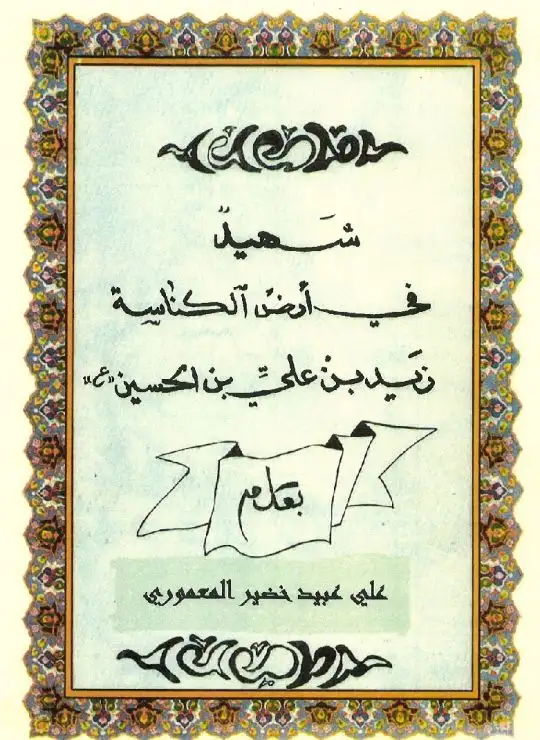 شَهيدٌ
في أرضِ الكناسة
زَيد بنْ عليِّ بن الحسين «ع»
بقلم
علي عبيد خضير المعموري